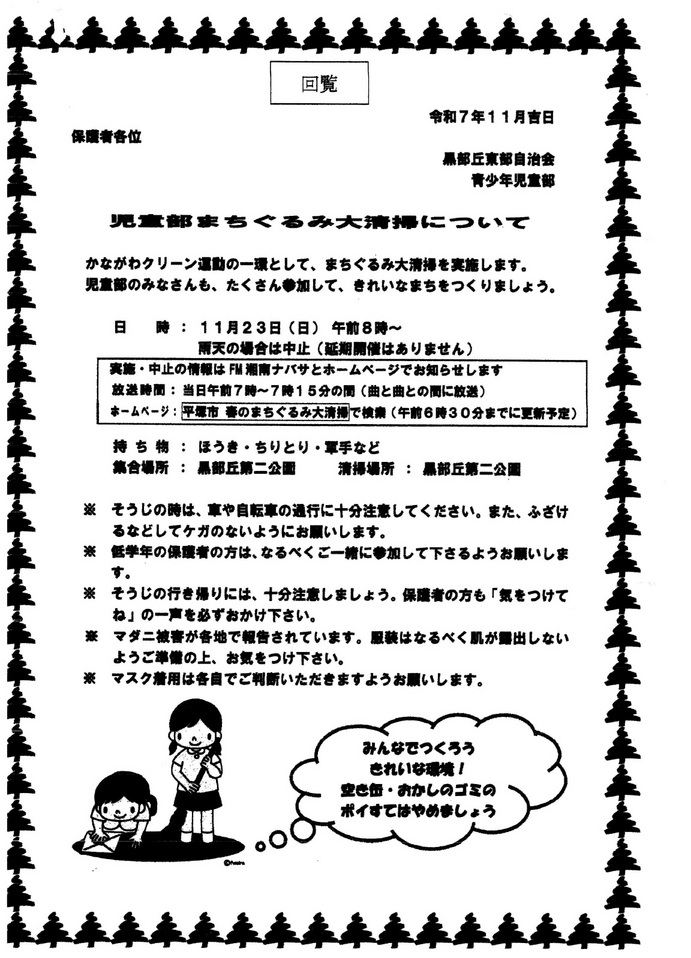 回覧
令和7年11月吉日
保護者各位
黒部丘東部自治会
青少年児童部
児童部まちぐるみ大清掃について
かながわクリーン運動の一環として、まちぐるみ大清掃を実施します。
児童部のみなさんも、たくさん参加して、きれいなまちをつくりましょう。
日　　時 ： 11月23日（日） 午前8時～
雨天の場合は中止（延期開催はありません）
実施・中止の情報はFM湘南ナパサとホームページでお知らせします
放送時間：当日午前7時～7時15分の間（曲と曲との間に放送）
ホームページ：平塚市 春のまちぐるみ大清掃で検索（午前6時30分までに更新予定）
持 ち 物 ： ほうき・ちりとり・軍手など
集合場所 ： 黒部丘第二公園　　清掃場所 ： 黒部丘第二公園
※ そうじの時は、車や自転車の通行に十分注意してください。また、ふざけ
るなどしてケガのないようにお願いします。
※ 低学年の保護者の方は、なるべくご一緒に参加して下さるようお願いしま
す。
※ そうじの行き帰りには、十分注意しましょう。保護者の方も「気をつけて
ね」の一声を必ずおかけ下さい。
※ マダニ被害が各地で報告されています。服装はなるべく肌が露出しない
ようご準備の上、お気をつけ下さい。
※ マスク着用は各自でご判断いただきますようお願いします。
みんなでつくろう
きれいな環境！
空き缶・おかしのゴミの
ポイすてはやめましょう